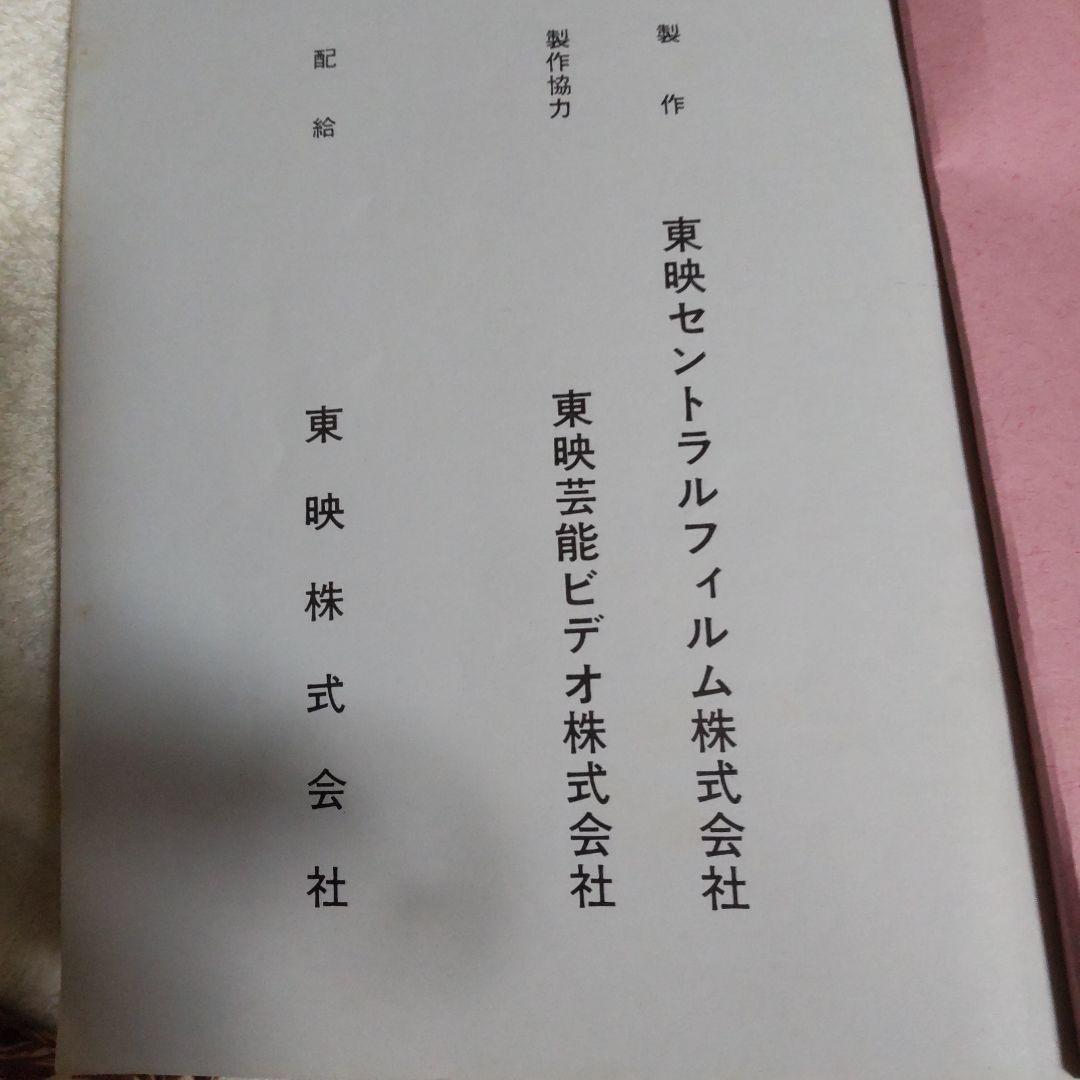 製作
東映セントラルフィルム株式会社
製作協力
東映芸能ビデオ株式会社
配給
東映株式会社